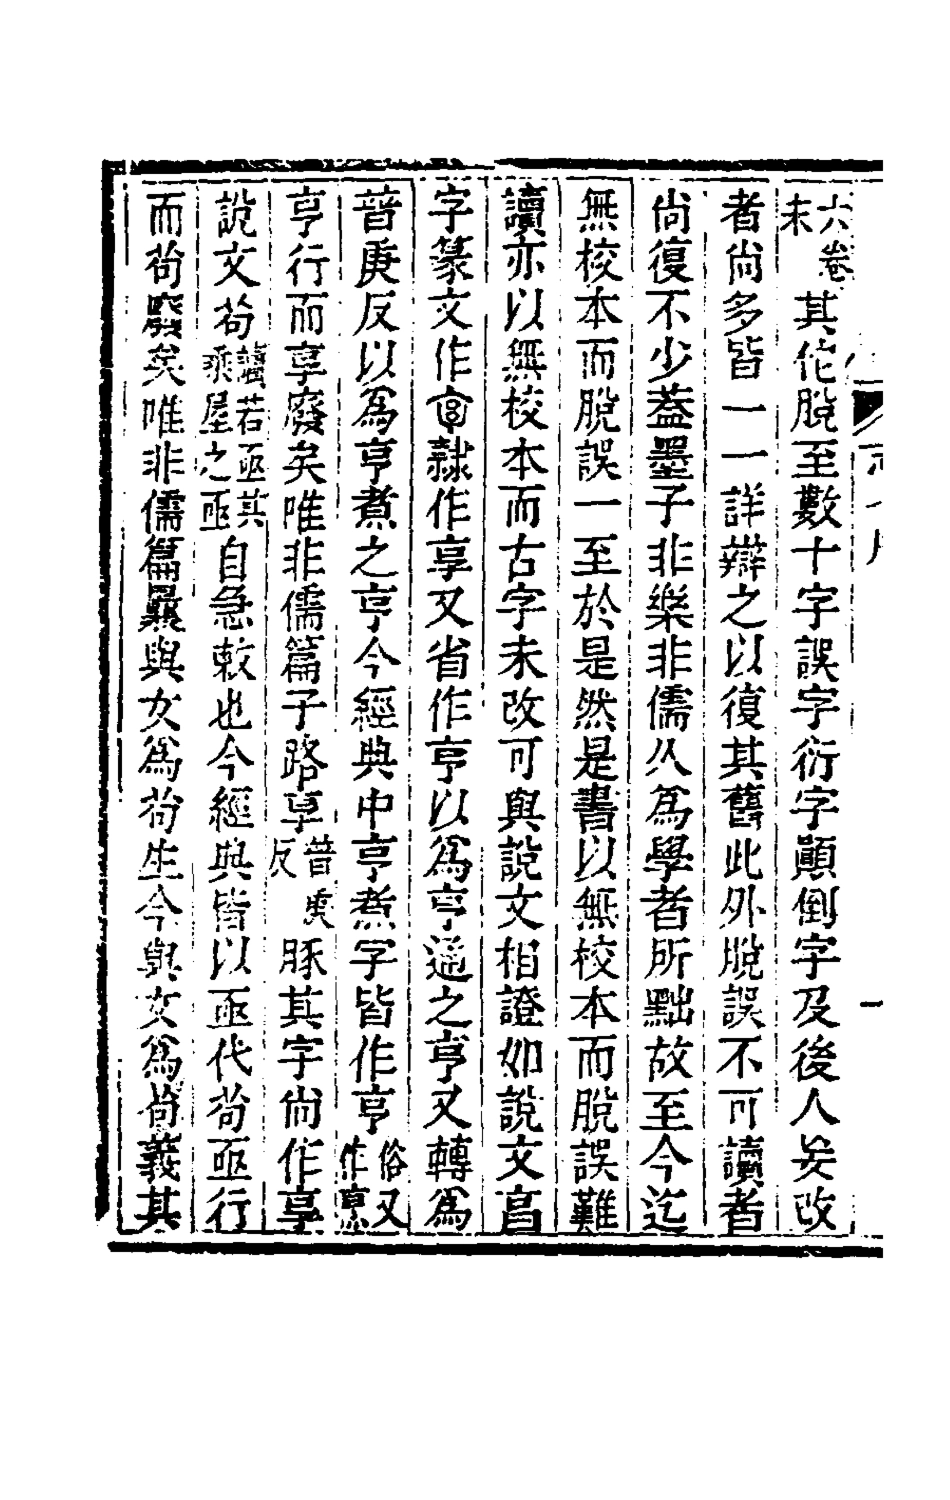 六卷末其佗脫至數十字誤字衍字顚倒字及後人妄改
者尚多皆一一詳辯之以復其舊此外脫誤不可讀者
尚復不少葢墨子非樂非儒久爲學者所黜故至今迄
無校本而脫誤一至於是然是書以無校本而脫誤難
讀亦以無校本而古字未改可與說文相證如說文㐭
字篆文作𠅠隸作享又省作亨以爲亨通之亨又轉爲
普庚反以爲亨煮之亨今經典中亨煮字皆作亨俗又作烹
亨行而享廢矣唯非儒篇子路享普庚反豚其字尚作享
說文茍讀若亟其乘屋之亟自急敕也今經典皆以亟代茍亟行
而茍廢矣唯非儒篇曩與女爲茍生今與女爲茍義其